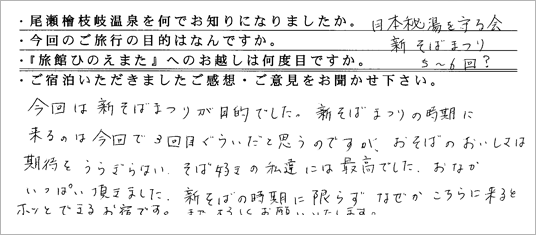 ・尾瀬檜枝岐温泉を何でお知りになりましたか。 日本秘湯を守る会
・今回のご旅行の目的はなんですか。 新そばまつり
・『旅館ひのえまた』へのお越しは何度目ですか。 5～6回？
・ご宿泊いただきましたご感想・ご意見をお聞かせ下さい。
今回は新そばまつりが目的でした。新そばまつりの時期に
来るのは今回で3回目ぐらいだと思うのですが、おそばのおいしさは
期待をうらぎらない、そば好きの私達には最高でした。おなか
いっぱい頂きました。新そばの時期に限らずなぜかこちらに来ると
ホッとできるお宿です。またよろしくお願いいたします。